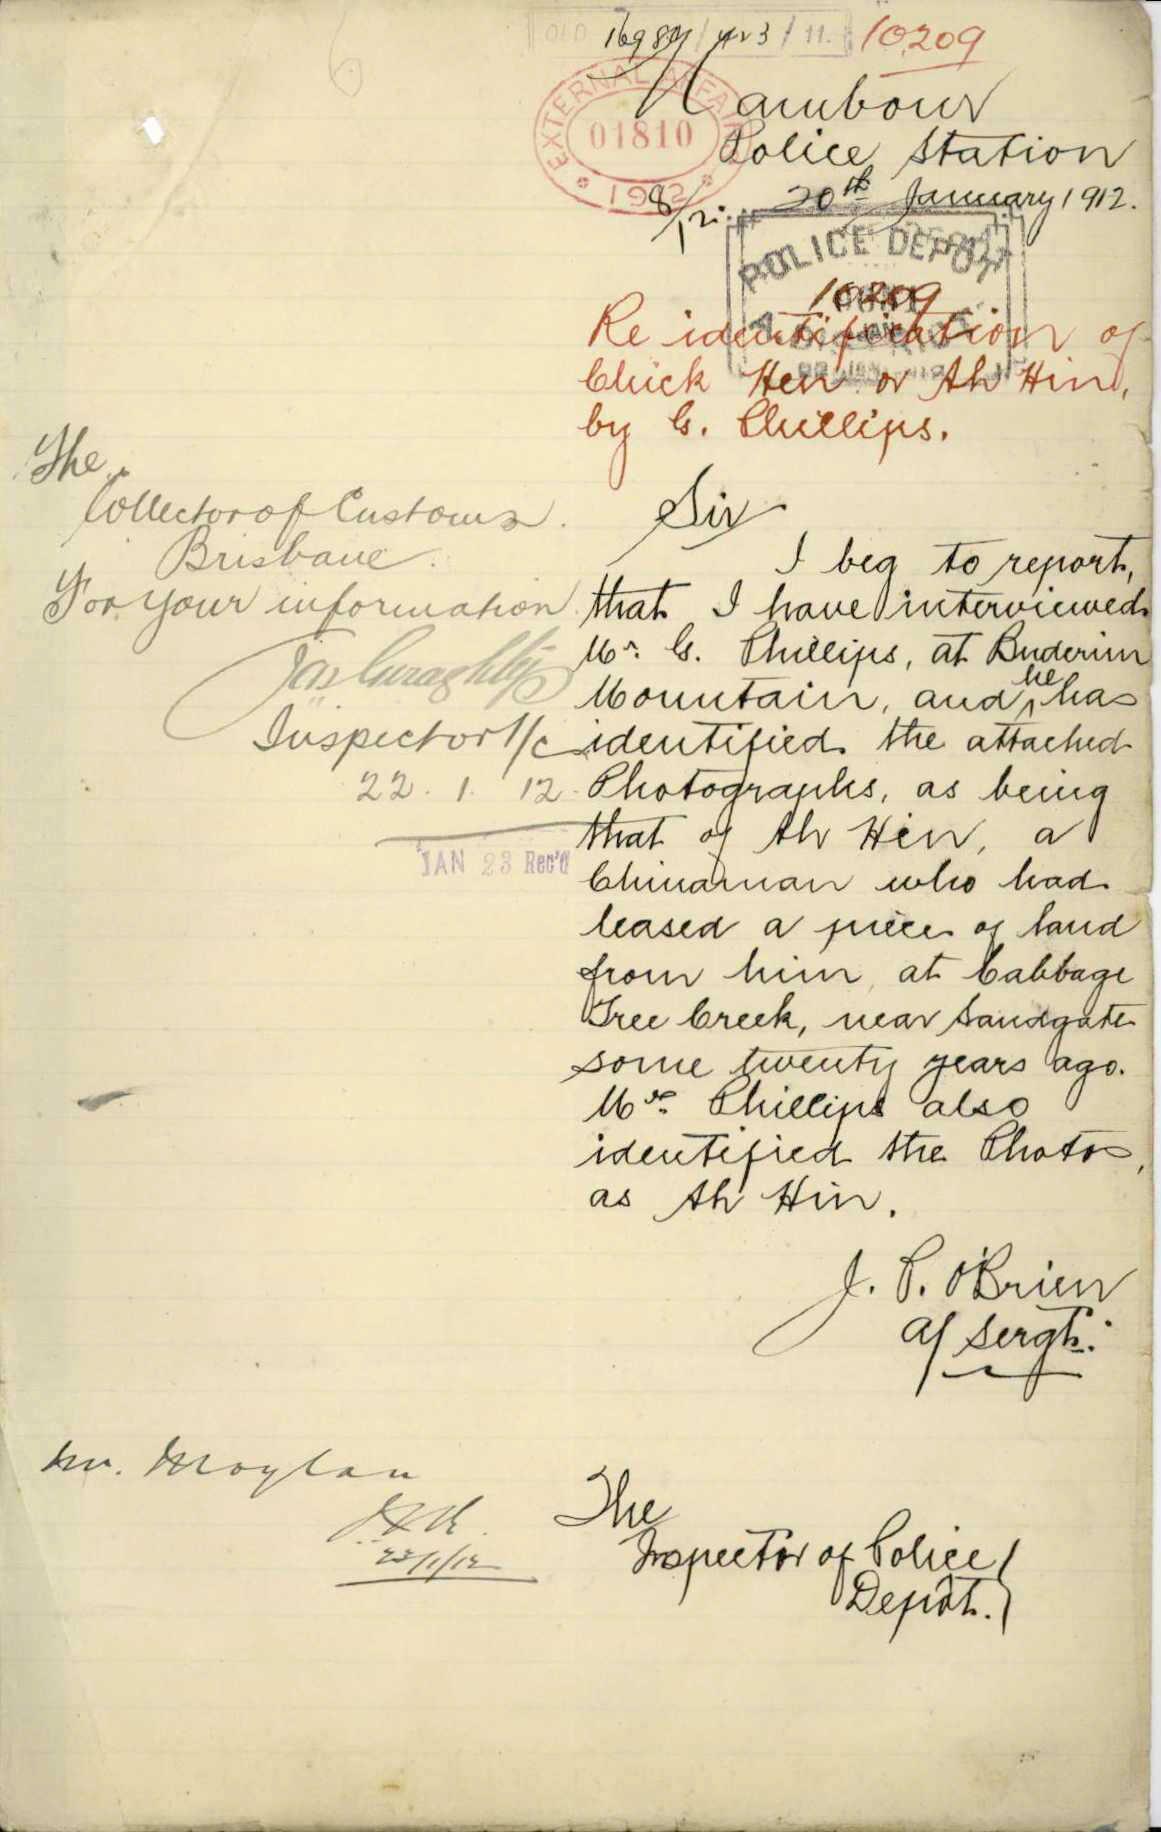 10209
EXTERNAL AFFAIRS
01810
1912
Nambour
Police Station
8/12.
20th January 1912.
POLICE DEPOT
10209
Re identification of
Chick Hen or Ah Hin,
by G. Phillips.
Sir
I beg to report,
that I have interviewed
Mr. G. Phillips, at Buderim
Mountain, and he has
identified the attached
Photographs, as being
that of Ah Hin, a
Chinaman who had
leased a piece of land
from him, at Cabbage
Tree Creek, near Sandgate
some twenty years ago.
Mrs. Phillips also
identified the Photos,
as Ah Hin.
J. P. O'Brien
A/ Sergt.
The
Inspector of Police
Depôt.
The
Collector of Customs.
Brisbane.
For your information
Inspector I/c
22. 1. 12.
JAN 23 Rec'd
Mr. Moylan
23/1/12